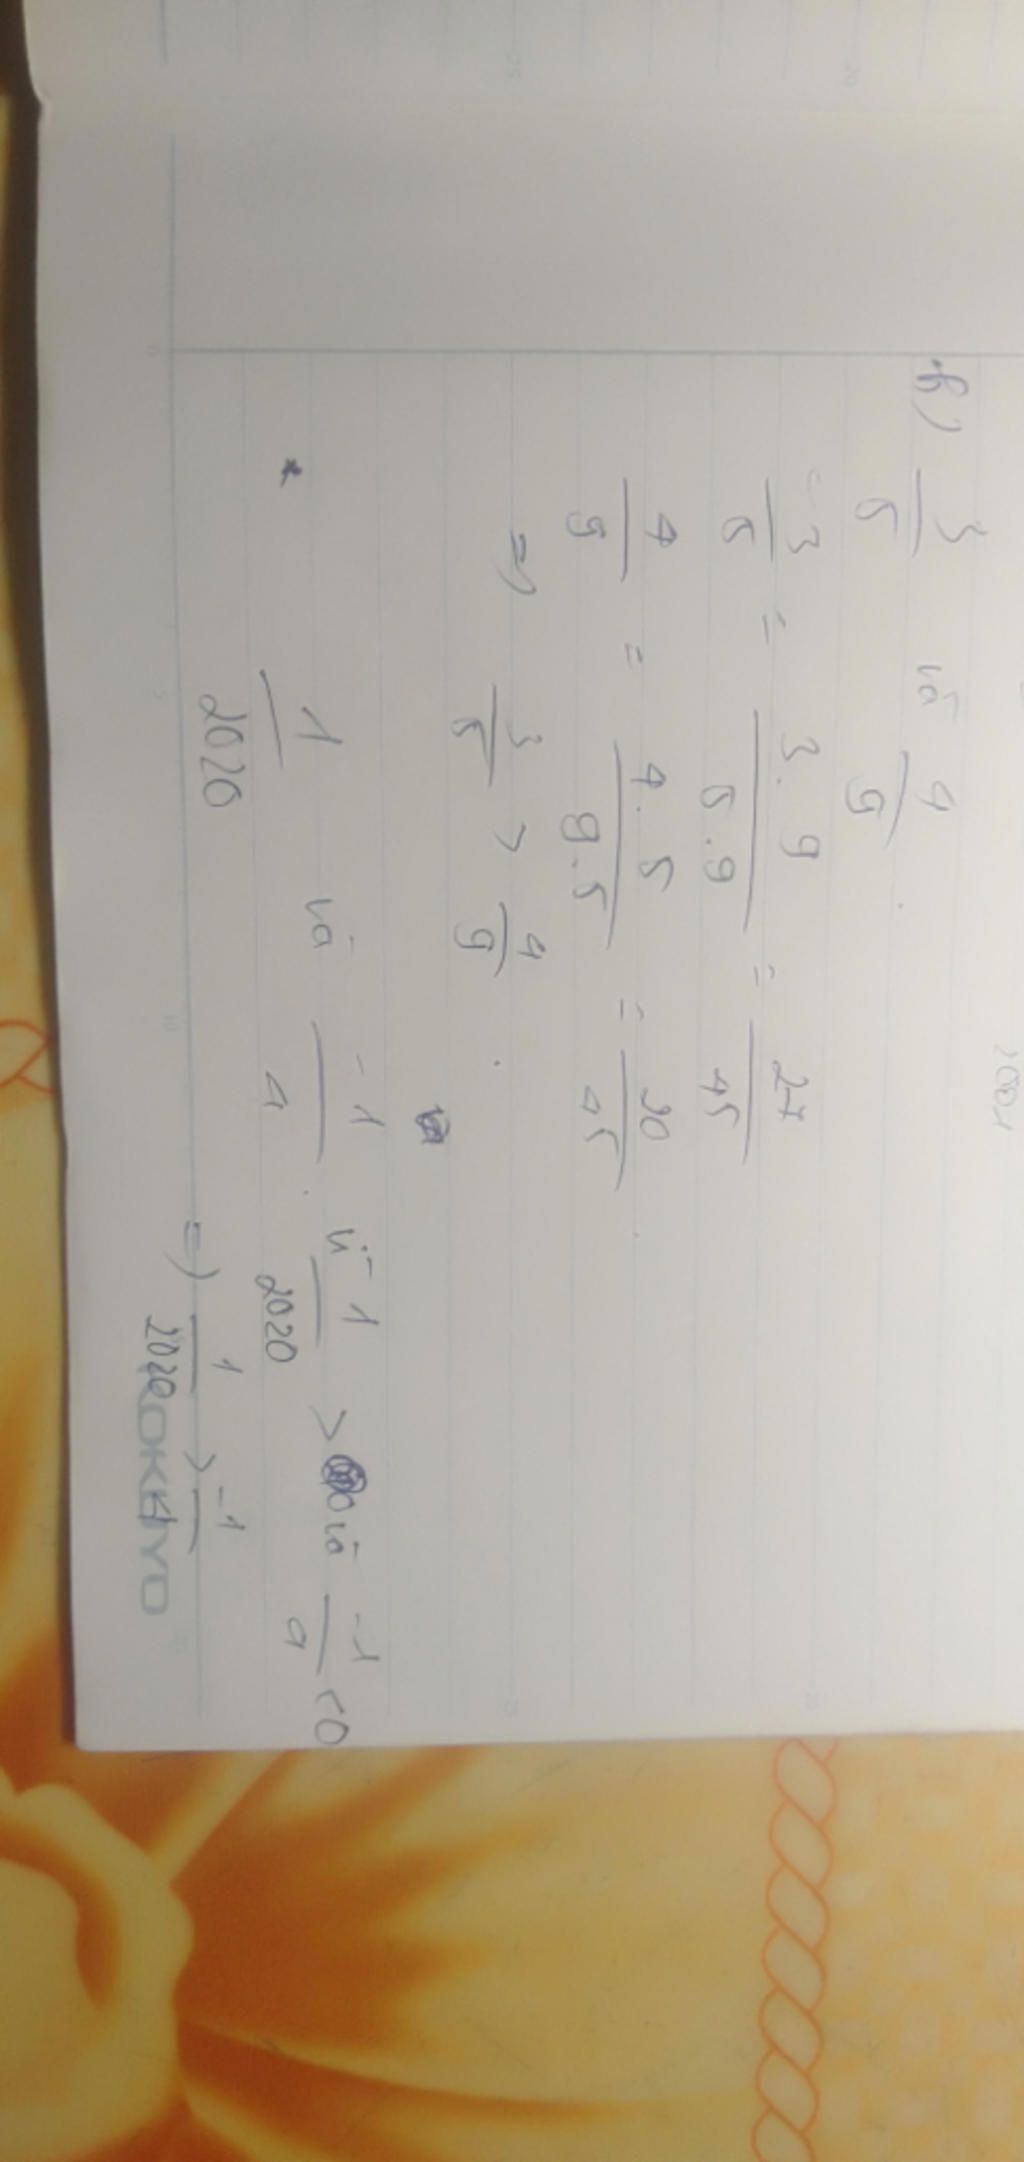 b) 3/5 và 4/9.
3/5 = 3.9/5.9 = 27/45
4/9 = 4.5/9.5 = 20/45.
=) 3/5 > 4/9.
* 1/2020 và -1/4. vì 1/2020 > 0 và -1/4 < 0
=) 1/2020 > -1/4
KOKUYO